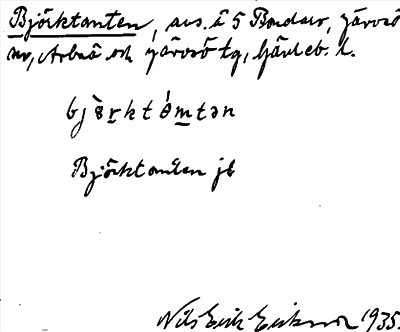 Björktanten, avs. å 5 Bondarv, Järvsö
sn, Arbrå och Järvsö tg, Gävleb. l.
bjèrktómtən
Björktanten jb
Nils Erik Eriksson 1935.